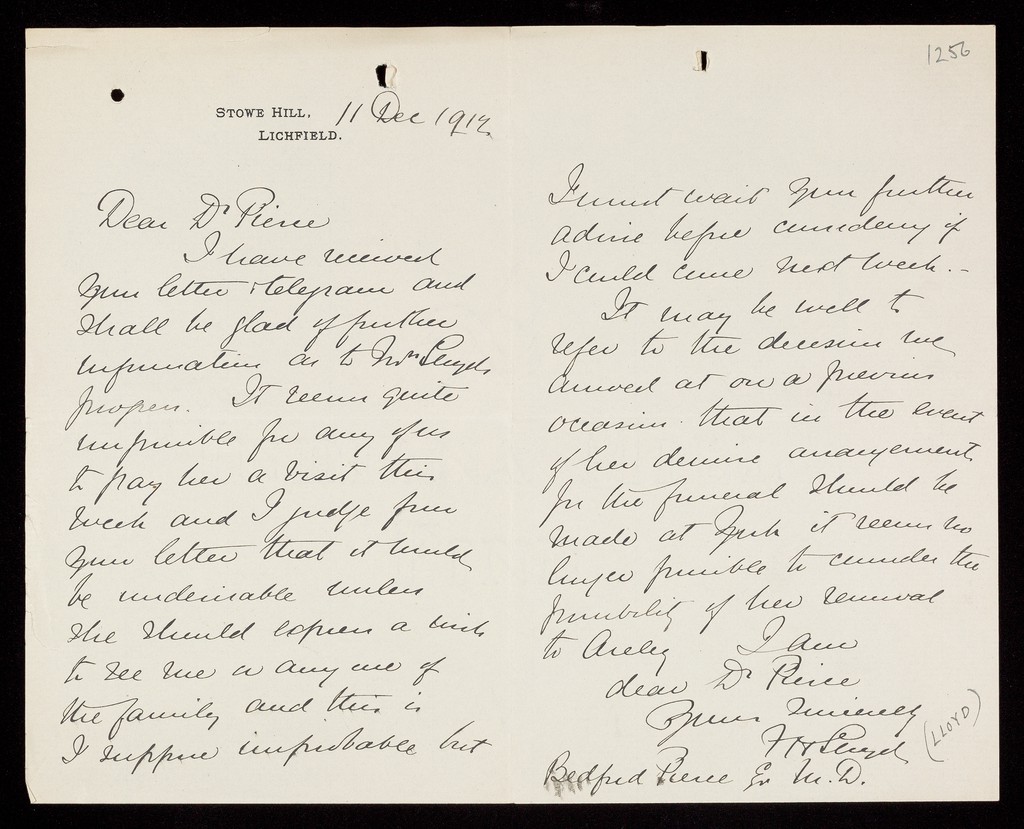 1256
STOWE HILL,
LICHFIELD.
11 Dec 1912
Dear Dr Pierce
I have received
your letter & telegram and
shall be glad of further
information as to Mrs Lloyds
progress. It seems quite
impossible for any of us
to pay her a visit this
week and I judge from
your letter that it would
be undesirable unless
she should express a wish
to see me or any one of
the family and this is
I suppose improbable but
I must wait your further
advice before considering if
I could come next week. -
It may be well to
refer to the decision we
arrived at on a previous
occasion. that in the event
of her demise arrangements
for the funeral should be
made at York it seems no
longer possible to consider the
possibility of her removal
to Areley I am
dear Dr Pierce
Yours Sincerely
Lloyd
(LLOYD)
Bedford Pierce Esq M.D.